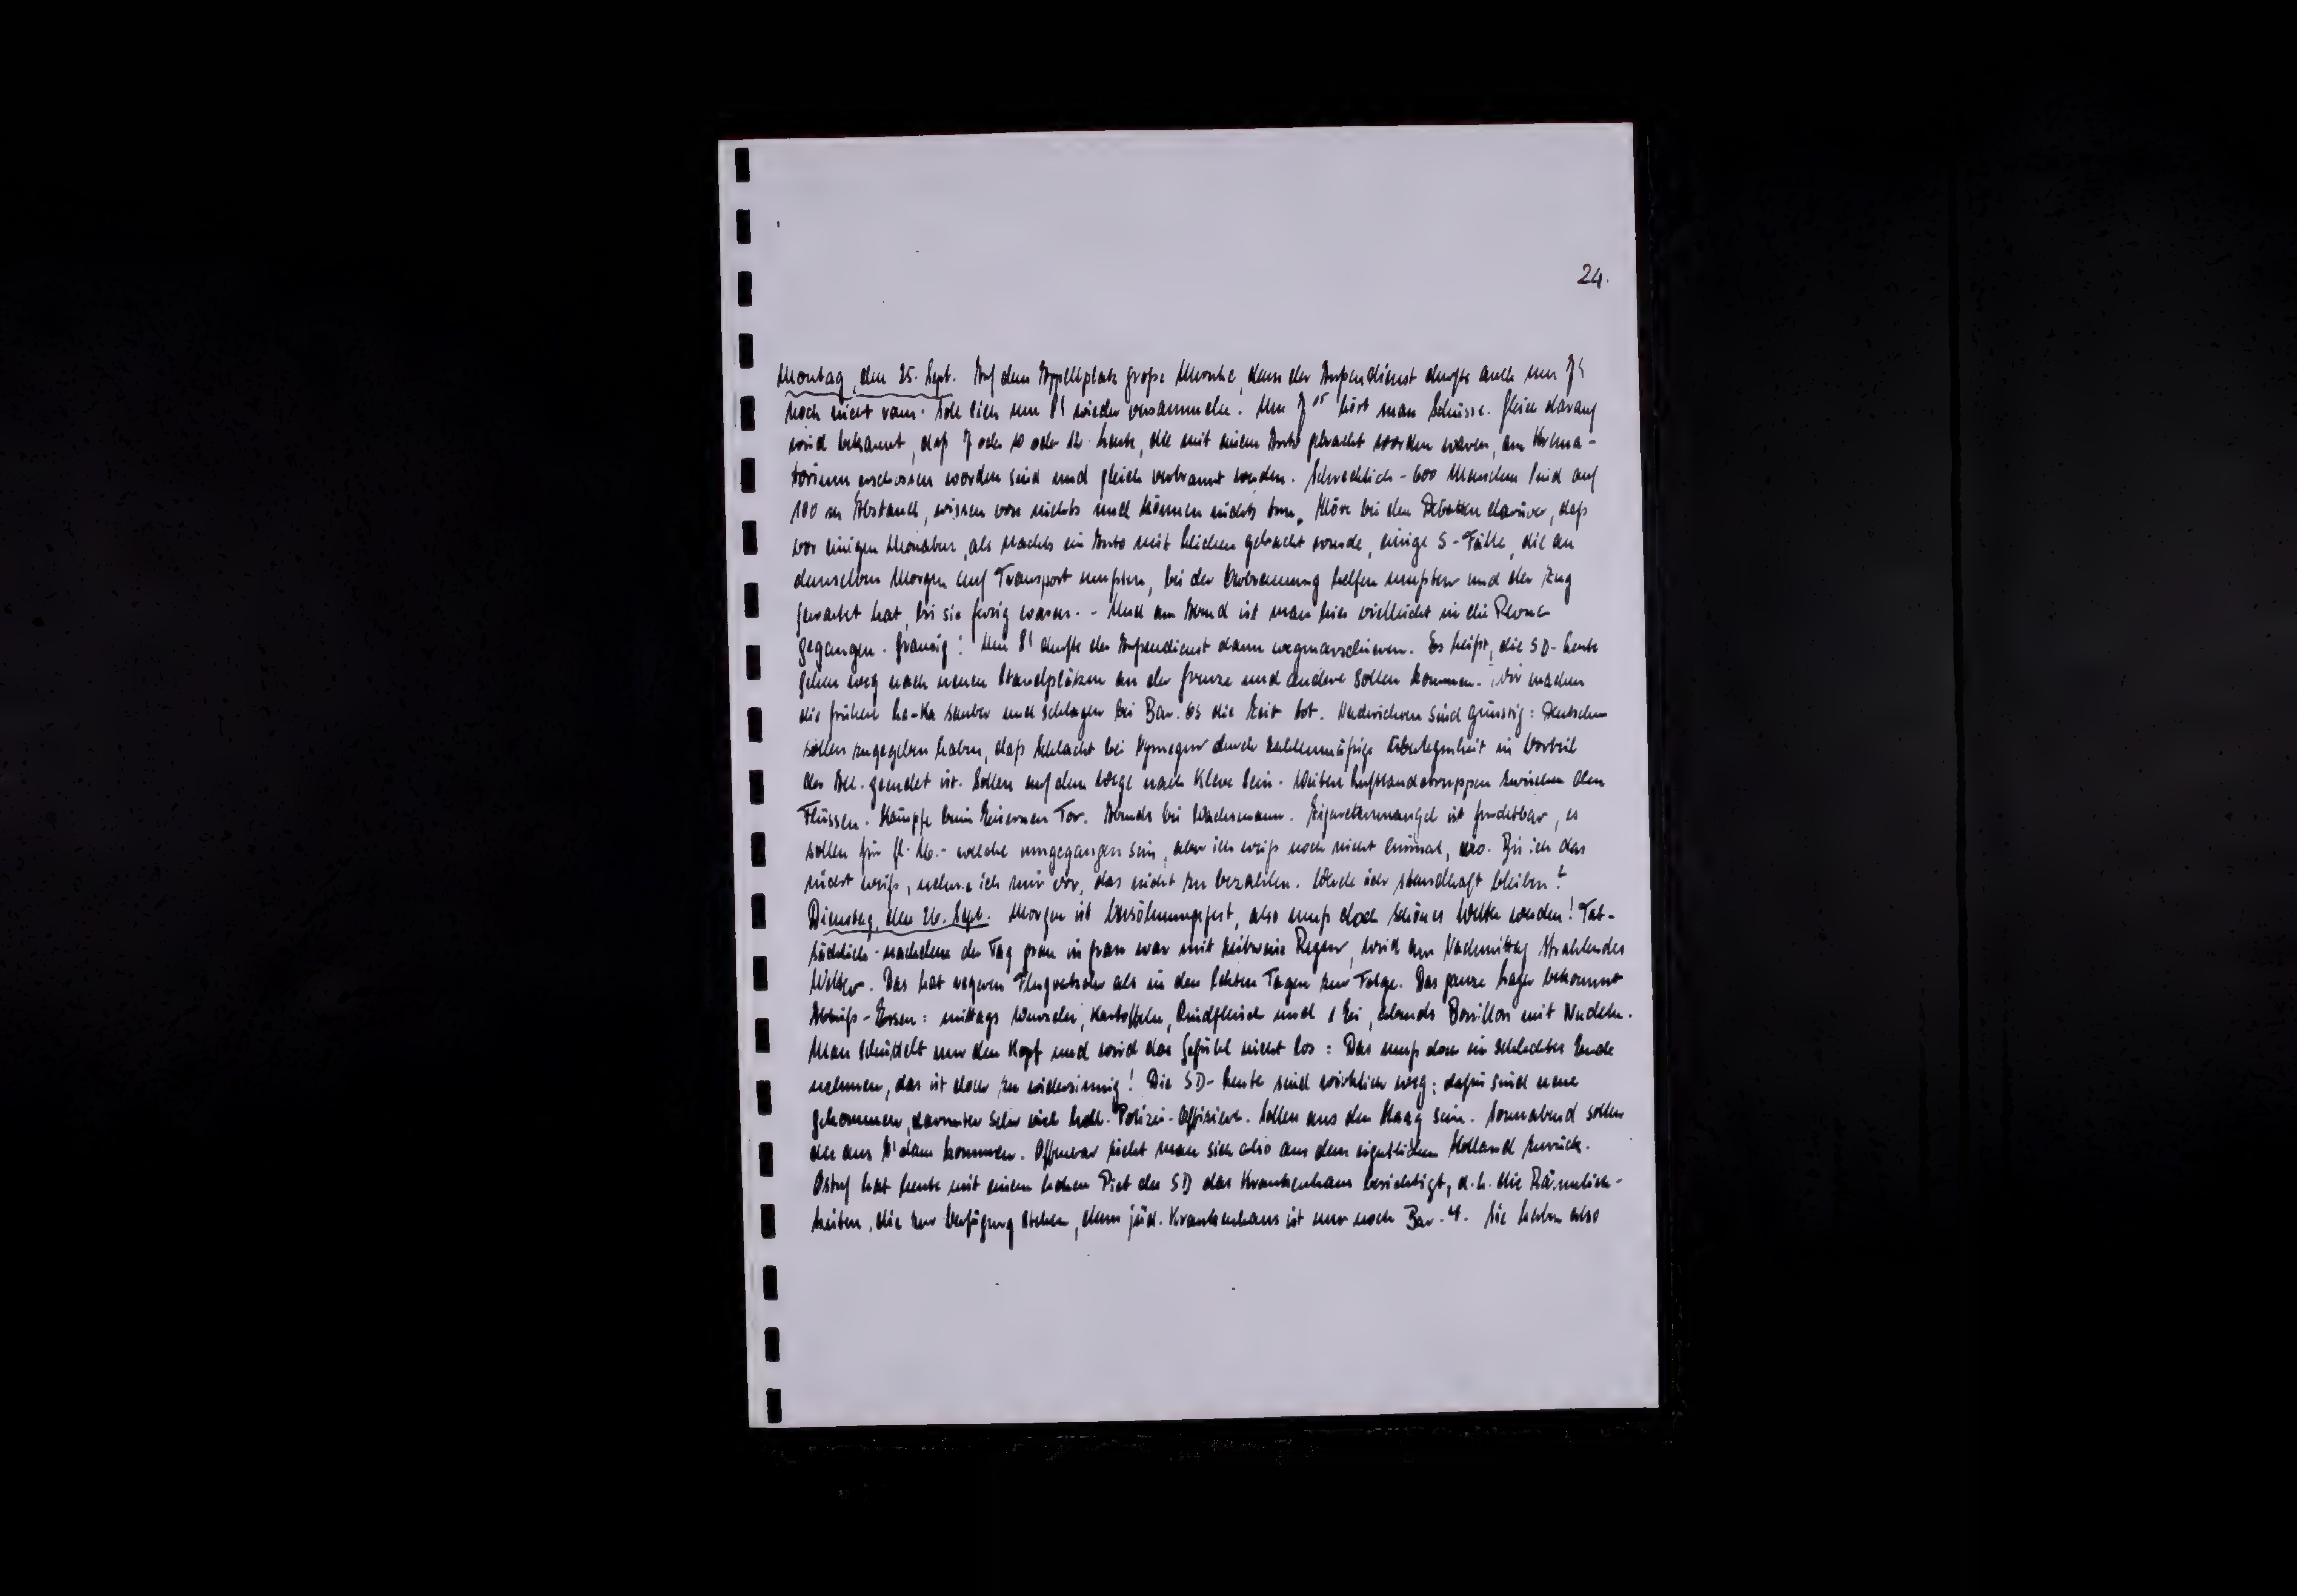 24.
Montag, den 25. Sept. Auf dem Appellplatz große Unruhe, denn der Außendienst durfte auch um 7h
noch nicht raus. Soll sich um 8h wieder versammeln. Um 7 05 hört man Schüsse. Gleich darauf
wird bekannt, daß 7 oder 10 oder 12 Leute, die mit einem Auto gebracht worden waren, am Krema-
torium erschossen worden sind und gleich verbrannt werden. Schrecklich - 600 Menschen sind auf
100 m Abstand, wissen von nichts und können nichts tun. Höre bei den Debatten darüber, daß
vor einigen Monaten, als nachts ein Auto mit Leichen gebracht wurde, einige S-Fälle, die an
demselben Morgen auf Transport mußten, bei der Verbrennung helfen mußten und der Zug
gewartet hat, bis sie fertig waren. - Und am Abend ist man hier vielleicht in die Revue
gegangen. Grausig! Um 8h durfte der Außendienst dann wegmarschieren. Es heißt, die SD-Leute
gehen weg nach neuen Standplätzen an der Grenze und andere sollen kommen. Wir machen
die frühere La-Ka sauber und schlagen bei Bar. 65 die Zeit tot. Nachrichten sind günstig: Deutschen
sollen zugegeben haben, daß Schlacht bei Nymegen durch zahlenmäßige Überlegenheit im Vorteil
der All. geendet ist. Sollen auf dem Wege nach Kleve sein. Weitere Luftlandetruppen zwischen den
Flüssen. Kämpfe beim Eisernen Tor. Abends bei Wachsmann. Zigarettenmangel ist furchtbar, es
sollen für fl. 16.- welche umgegangen sein, aber ich weiß noch nicht einmal, wo. Bis ich das
nicht weiß, nehme ich mir vor, das nicht zu bezahlen. Werde ich standhaft bleiben?
Dienstag, den 26. Sept. Morgen ist Versöhnungsfest, also muß doch schönes Wetter werden! Tat-
sächlich - nachdem der Tag grau in grau war mit zeitweise Regen, wird am Nachmittag strahlendes
Wetter. Das hat regeren Flugverkehr als in den letzten Tagen zur Folge. Das ganze Lager bekommt
Anbeiß-Essen: mittags Wurzeln, Kartoffeln, Rindfleisch und 1 Ei, abends Bouillon mit Nudeln.
Man schüttelt nur den Kopf und wird das Gefühl nicht los: Das muß doch ein schlechtes Ende
nehmen, das ist doch zu widersinnig! Die SD-Leute sind wirklich weg; dafür sind neue
gekommen, darunter sehr viel holl. Polizei-Offiziere. Sollen aus den Haag sein. Sonnabend sollen
die aus A'dam kommen. Offenbar zieht man sich also aus dem eigentlichen Holland zurück.
Ostuf hat heute mit einem hohen Piet der SD das Krankenhaus besichtigt, d.h. die Räumlich-
keiten, die zur Verfügung stehen, denn jüd. Krankenhaus ist nur noch Bar. 4. Sie haben also